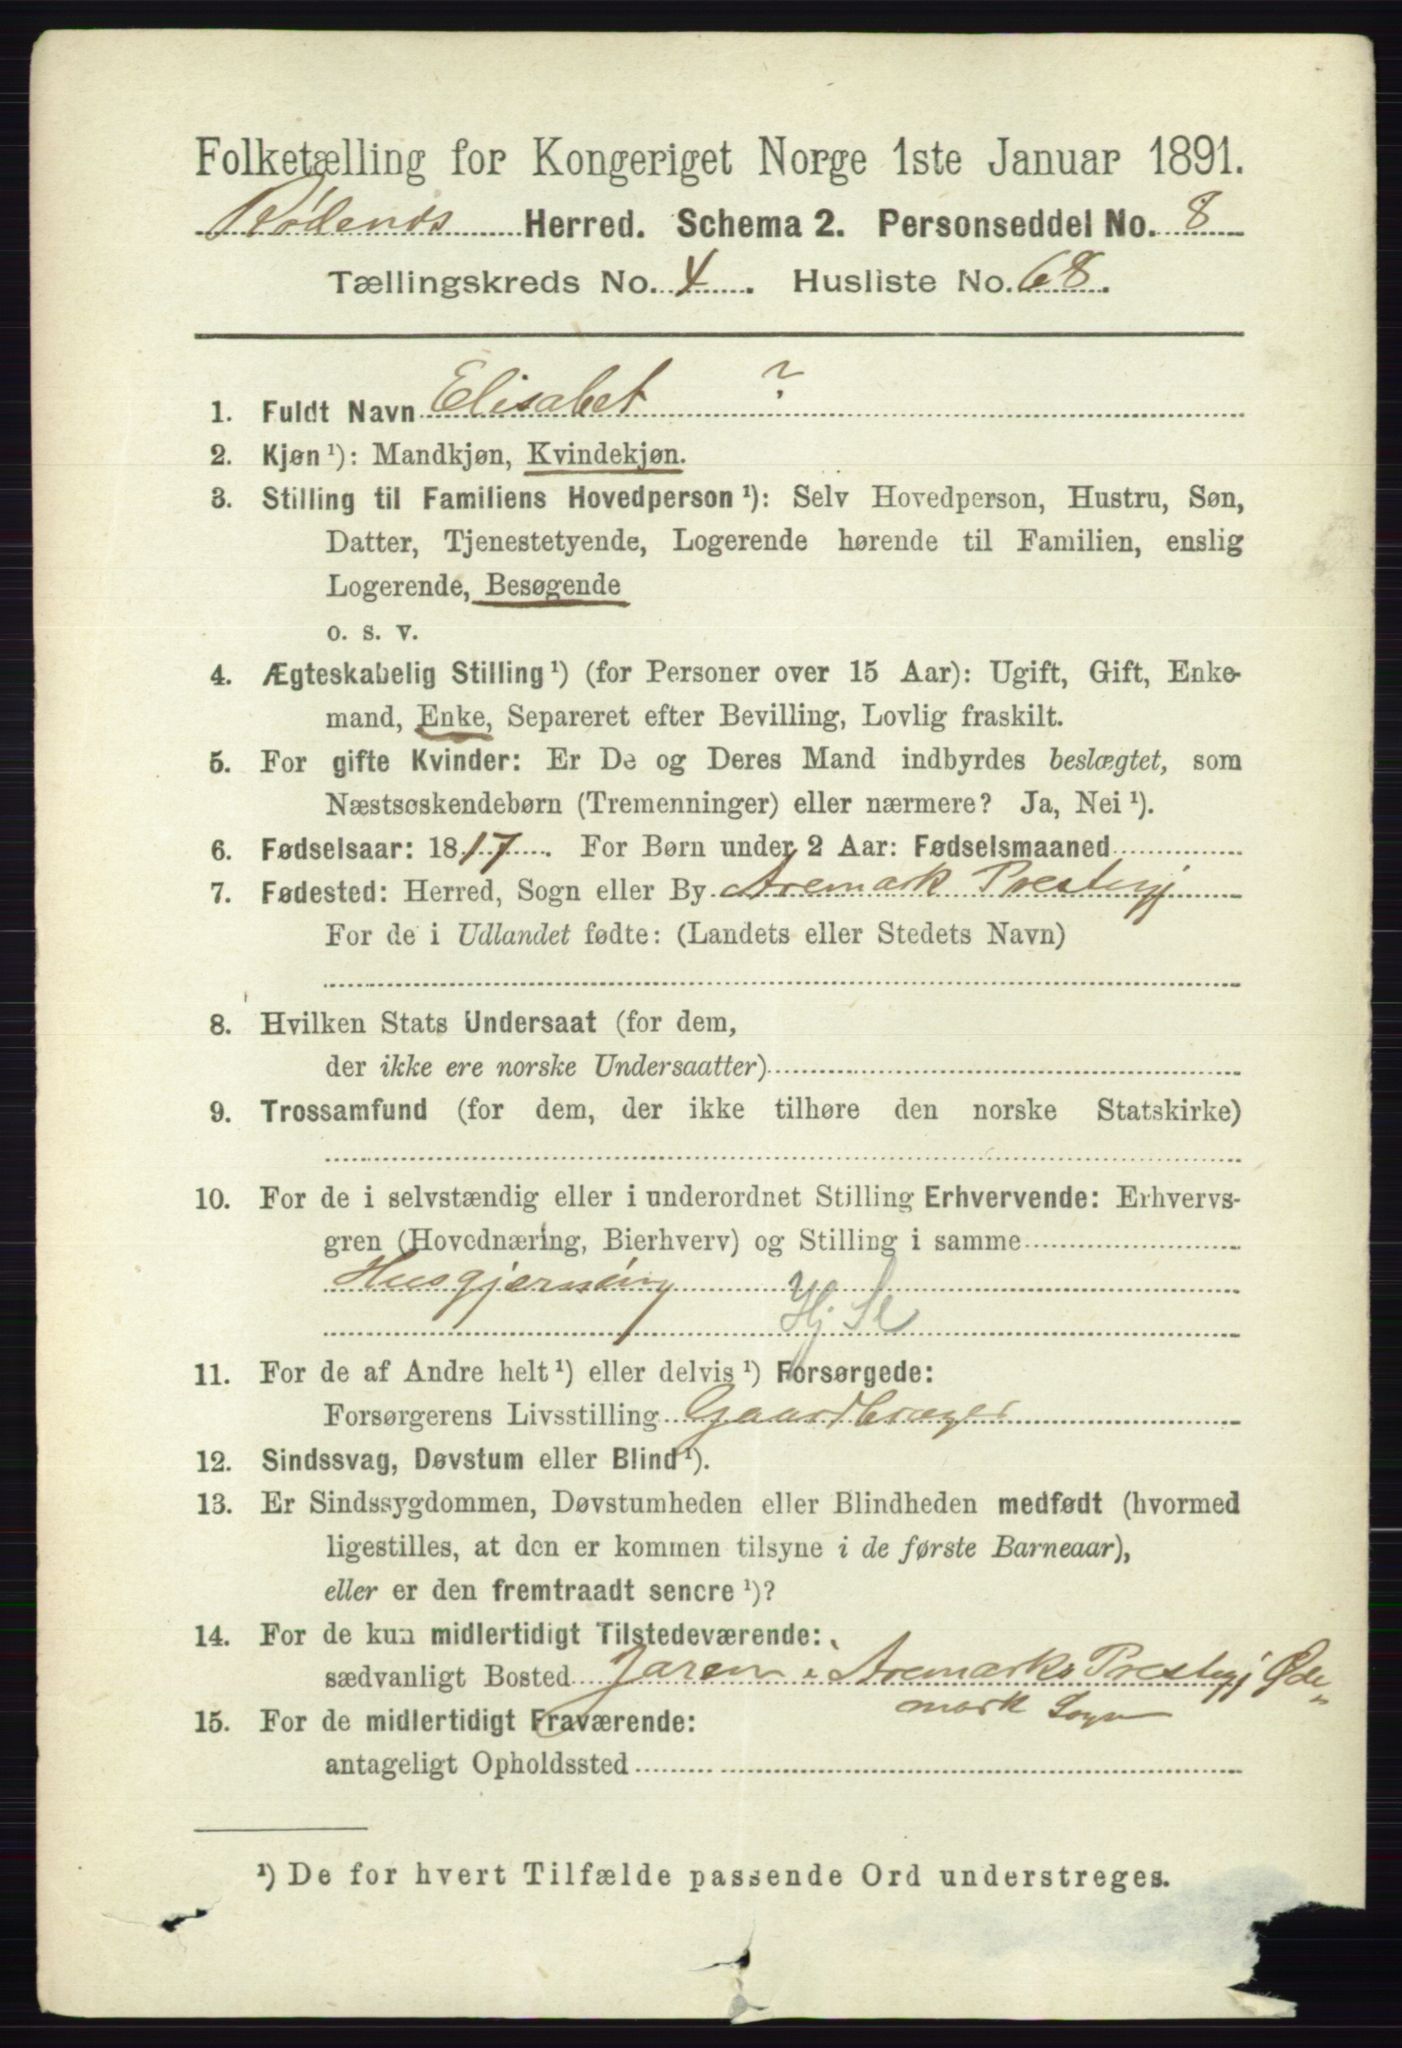 Folketælling for Kongeriget Norge 1ste Januar 1891.
Rødenes Herred. Schema 2. Personseddel No. 8
Tællingskreds No. 4. Husliste No. 68.
1. Fuldt Navn Elisabet ?
2. Kjøn ¹): Mandkjøn, Kvindekjøn.
3. Stilling til Familiens Hovedperson ¹): Selv Hovedperson, Hustru, Søn,
Datter, Tjenestetyende, Logerende hørende til Familien, enslig
Logerende, Besøgende
o. s. v.
4. Ægteskabelig Stilling ¹) (for Personer over 15 Aar): Ugift, Gift, Enke-
mand, Enke, Separeret efter Bevilling, Lovlig fraskilt.
5. For gifte Kvinder: Er De og Deres Mand indbyrdes beslægtet, som
Næstsøskendebørn (Tremenninger) eller nærmere? Ja, Nei ¹).
6. Fødselsaar: 1817. For Børn under 2 Aar: Fødselsmaaned
7. Fødested: Herred, Sogn eller By Aremark Prestegj
For de i Udlandet fødte: (Landets eller Stedets Navn)
8. Hvilken Stats Undersaat (for dem,
der ikke ere norske Undersaatter)
9. Trossamfund (for dem, der ikke tilhøre den norske Statskirke)
10. For de i selvstændig eller i underordnet Stilling Erhvervende: Erhvervs-
gren (Hovednæring, Bierhverv) og Stilling i samme
Husgjerning Hj Sl
11. For de af Andre helt ¹) eller delvis ¹) Forsørgede:
Forsørgerens Livsstilling Gaardbruger
12. Sindssvag, Døvstum eller Blind ¹).
13. Er Sindssygdommen, Døvstumheden eller Blindheden medfødt (hvormed
ligestilles, at den er kommen tilsyne i de første Barneaar),
eller er den fremtraadt senere ¹)?
14. For de kun midlertidigt Tilstedeværende:
sædvanligt Bosted Jaren i Aremarks Prestegj Øde-
mark Sogn
15. For de midlertidigt Fraværende:
antageligt Opholdssted
¹) De for hvert Tilfælde passende Ord understreges.